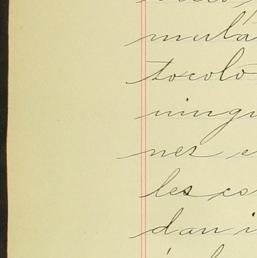 mulá
tocolo
ningu
nes e
les co
dan i